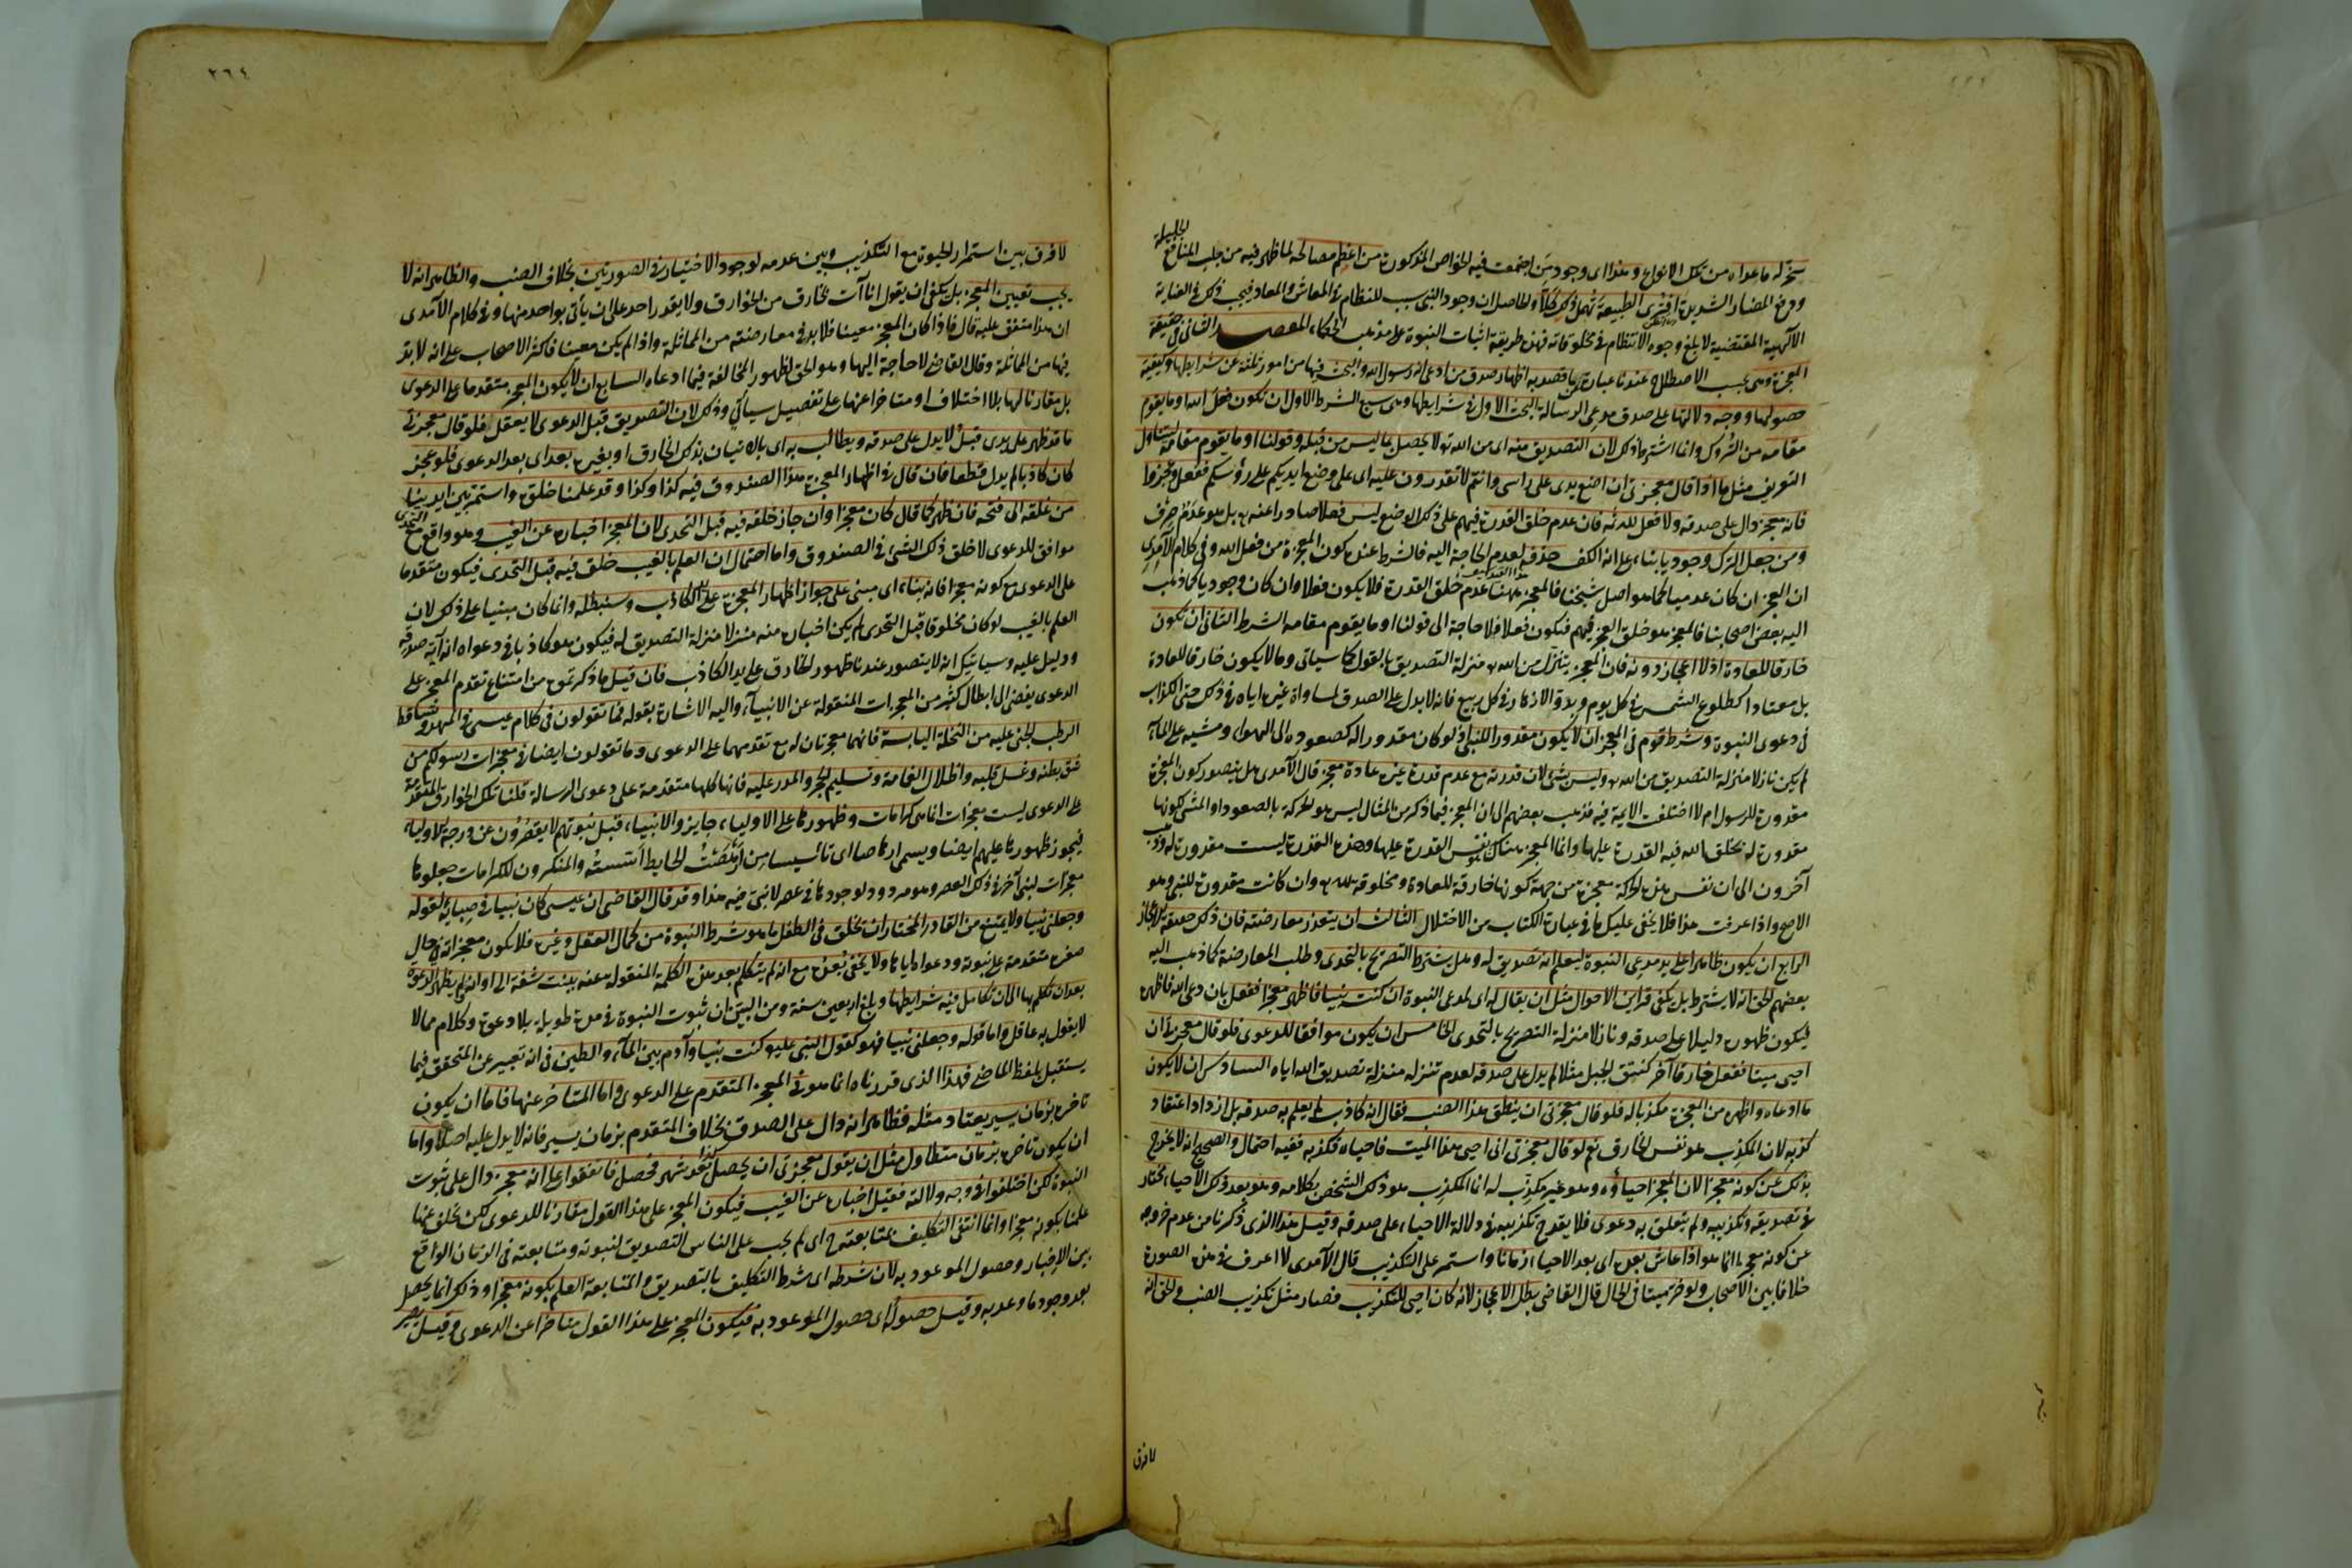 الجليلة
سخر له ما عداه من تلك الانواع وهذا اى وجود من اجتمعت فيه الخواص المذكورة من اعظم مصالحه لما ظهر فيه من جلب المنافع
ودفع المضار الشديدة افترى الطبيعة تهمل ذلك كلا والحاصل ان وجود النبى سبب للنظام فى المعاش والمعاد فيجب ذلك فى العناية
الالهية المقتضية لابلغ وجوه الانتظام فى مخلوقاته فهذه طريقة اثبات النبوة على مذهب الحكماء المقصد الثانى فى حقيقة
المعجزة وهى بحسب الاصطلاح عندنا عبارة عن ما قصد به اظهار صدق من ادعى انه رسول الله والبحث فيها من امور ثلثة عن شرايطها وكيفية
حصولها ووجه دلالتها على صدق مدعى الرسالة البحث الاول فى شرايطها وهى سبع الشرط الاول ان تكون فعل الله او ما يقوم
مقامه من التروك وانما اشترط ذلك لان التصديق منه اى من الله تع لا يحصل بما ليس من قبله وقولنا او ما يقوم مقامه ليتناول
التعريف مثل ما اذا قال معجزتى ان اضع يدى على راسى وانتم لا تقدرون عليه اى على وضع ايديكم على رؤسكم ففعل وعجزوا
فانه معجز دال على صدقه ولا فعل لله ثمه فان عدم خلق القدرة فيهم على ذلك الوضع ليس فعلا صادرا عنه بل هو عدم صرف
ومن جعل الترك وجوديا بناء على انه الكف حذفه لعدم الحاجة اليه فالشرط عنده كون المعجزة من فعل الله وفى كلام الآمدى
هذا القيد
ان العجز ان كان عدميا كما هو اصل شيخنا فالمعجز ههنا عدم خلق القدرة فلا يكون فعلا وان كان وجوديا كما ذهب
اليه بعض اصحابنا فالمعجز هو خلق العجز فيهم فيكون فعلا فلا حاجة الى قولنا او ما يقوم مقامه الشرط الثانى ان تكون
خارقا للعادة اذ لا اعجاز دونه فان المعجز يتنزل من الله منزلة التصديق بالقول كما سياتى وما لا يكون خارقا للعادة
بل معتادا كطلوع الشمس فى كل يوم وبدو الازهار فى كل ربيع فانه لا يدل على الصدق لمساواة غيره اياه فى ذلك حتى الكذاب
فى دعوى النبوة وشرط قوم فى المعجز ان لا يكون مقدورا للنبى اذ لو كان مقدورا له كصعوده الى الهواء ومشيه على الماء
لم يكن نازلا منزلة التصديق من الله وليس بشئ لان قدرته مع عدم قدرة غيره عادة معجز قال الآمدى هل يتصور كون المعجزة
مقدورة للرسول ام لا اختلفت الايمة فيه فذهب بعضهم الى ان المعجز فيما ذكر من المثال ليس هو الحركة بالصعود او المشى لكونها
مقدورة له بخلق الله فيه القدرة عليها وانما المعجز هناك هو نفس القدرة عليها وهذه القدرة ليست مقدورة له وذهب
آخرون الى ان نفس هذه الحركة معجزة من جهة كونها خارقة للعادة ومخلوقة لله وان كانت مقدورة للنبى وهو
الاصح واذا عرفت هذا فلا يخفى عليك ما فى عبارة الكتاب من الاختلال الثالث ان يتعذر معارضته فان ذلك حقيقة الاعجاز
الرابع ان يكون ظاهرا على يد مدعى النبوة ليعلم انه تصديق له وهل يشترط التصريح بالتحدى وطلب المعارضة كما ذهب اليه
بعضهم الحق انه لا يشترط بل يكفى قراين الاحوال مثل ان يقال له اى لمدعى النبوة ان كنت نبيا فاظهر معجزا ففعل بان دعى الله فاظهره
فيكون ظهوره دليلا على صدقه ونازلا منزلة التصريح بالتحدى الخامس ان يكون موافقا للدعوى فلو قال معجزتى ان
احيى ميتا ففعل خارقا آخر كنتق الجبل مثلا لم يدل على صدقه لعدم تنزله منزلة تصديق الله اياه السادس ان لا يكون
ما ادعاه واظهره من المعجزة مكذبا له فلو قال معجزتى ان ينطق هذا الضب فقال انه كاذب لم يعلم به صدقه بل ازداد اعتقاد
كذبه لان المكذب هو نفس الخارق نعم لو قال معجزتى انى احيى هذا الميت فاحياه فكذبه ففيه احتمال والصحيح انه لا يخرج
بذلك عن كونه معجزا لان المعجز احياؤه وهو غير مكذب له انما المكذب هو ذلك الشخص بكلامه وهو بعد ذلك الاحياء مختار
فى تصديقه وتكذيبه ولم يتعلق به دعوى فلا يقدح تكذيبه فى دلالة الاحياء على صدقه وقيل هذا الذى ذكرنا من عدم خروجه
عن كونه معجزا انما هو اذا عاش بعده اى بعد الاحياء زمانا واستمر على التكذيب قال الآمدى لا اعرف فى هذه الصورة
خلافا بين الاصحاب ولو خر ميتا فى الحال قال القاضى بطل الاعجاز لانه كان احيى للتكذيب فصار مثل تكذيب الضب والحق انه
لا فرق
٢٦٤
لا فرق بين استمرار الحيوة مع التكذيب وبين عدمه لوجود الاختيار فى الصورتين بخلاف الضب والظاهر انه لا
يجب تعيين المعجز بل يكفى ان يقول انا آت بخارق من الخوارق ولا يقدر احد على ان يأتى بواحد منها وفى كلام الآمدى
ان هذا متفق عليه قال فاذا كان المعجز معينا فلا بد فى معارضته من المماثلة واذا لم يكن معينا فاكثر الاصحاب على انه لا بد
فيها من المماثلة وقال القاضى لا حاجة اليها وهو الحق لظهور المخالفة فيما ادعاه السابع ان لا يكون المعجز متقدما على الدعوى
بل مقارنا لها بلا اختلاف او متاخرا عنها على تفصيل سيأتى وذلك لان التصديق قبل الدعوى لا يعقل فلو قال معجزتى
ما قد ظهر على يدى قبل لا يدل على صدقه ويطالب به اى بالاتيان بذلك الخارق او بغيره بعد اى بعد الدعوى فلو عجز
كان كاذبا لم يدل قطعا فان قال فى اظهار المعجزة هذا الصندوق فيه كذا وكذا وقد علمنا خلقه واستمر بين ايدينا
من غلقه الى فتحه فان ظهر كما قال كان معجزا وان جاز خلقه فيه قبل التحدى لان المعجز اخباره عن الغيب وهو واقع مع التحدى
موافق للدعوى لا خلق ذلك الشئ فى الصندوق واما احتمال ان العلم بالغيب خلق فيه قبل التحدى فيكون متقدما
على الدعوى مع كونه معجزا فانه بناء اى مبنى على جواز اظهار المعجزة على يد الكاذب وسنبطله وانما كان مبنيا على ذلك لان
العلم بالغيب لو كان مخلوقا قبل التحدى لم يكن اخباره منه منزلا منزلة التصديق له فيكون هو كاذبا فى دعواه انه آية صدقه
ودليل عليه وسياتيك انه لا يتصور عندنا ظهور الخارق على يد الكاذب فان قيل ما ذكرتموه من امتناع تقدم المعجز على
الدعوى يفضى الى ابطال كثير من المعجزات المنقولة عن الانبياء واليه الاشارة بقوله فما تقولون فى كلام عيسى فى المهد وتساقط
الرطب الجنى عليه من النخلة اليابسة فانهما معجزتان له مع تقدمهما على الدعوى وما تقولون ايضا فى معجزات رسولكم من
شق بطنه وغسل قلبه واظلال الغامة وتسليم الحجر والمدر عليه فانها كلها متقدمة على دعوى الرسالة قلنا تلك الخوارق المتقدمة
على الدعوى ليست معجزات انما هى كرامات وظهورها على الاولياء جايز والانبياء قبل نبوتهم لا يقصرون عن درجة الاولياء
فيجوز ظهورها عليهم ايضا ويسمى ارهاصا اى تاسيسا من ارهصت الحايط اسسته والمنكرون للكرامات جعلوها
معجزات لنبى آخر فى ذلك العصر وهو مردود لوجودها فى عصر لا نبى فيه هذا وقد قال القاضى ان عيسى كان نبيا فى صباه لقوله
وجعلنى نبيا ولا يمتنع من القادر المختار ان يخلق فى الطفل ما هو شرط النبوة من كمال العقل وغيره فلا يكون معجزاته فى حال
صغره متقدمة على نبوته ودعواه اياها ولا يخفى بعده مع انه لم يتكلم بعد هذه الكلمة المنقولة عنه ببنت شفة الى اوانه ولم يظهر الدعوة
بعد ان تكلم بها الى ان تكامل فيه شرايطها وبلغ اربعين سنة ومن البين ان ثبوت النبوة فى مدة طويلة بلا دعوة وكلام مما لا
لا يقول به عاقل واما قوله وجعلنى نبيا فهو كقول النبى عليه كنت نبيا وآدم بين الماء والطين فى انه تعبير عن المتحقق فيما
يستقبل بلفظ الماضى فهذا الذى قررناه انما هو فى المعجز المتقدم على الدعوى واما المتاخر عنها فاما ان يكون
تاخره بزمان يسير يعتاد مثله فظاهر انه دال على الصدق بخلاف المتقدم بزمان يسير فانه لا يدل عليه اصلا واما
ان يكون تاخره بزمان متطاول مثل ان يقول معجزتى ان يحصل كذا بعد شهر فحصل فاتفقوا على انه معجز دال على ثبوت
النبوة لكن اختلفوا فى وجه دلالته فقيل اخباره عن الغيب فيكون المعجز على هذا القول مقارنا للدعوى لكن تخلف عنها
علمنا بكونه معجزا وانما انتفى التكليف بمتابعته ح اى لم يجب على الناس التصديق لنبوته ومتابعته فى الزمان الواقع
بين الاخبار وحصول الموعود به لان شرطه اى شرط التكليف بالتصديق والمتابعة العلم بكونه معجزا وذلك انما يحصل
بعد وجود ما وعد به وقيل حصوله اى حصول الموعود به فيكون المعجز على هذا القول متاخرا عن الدعوى وقيل يصير